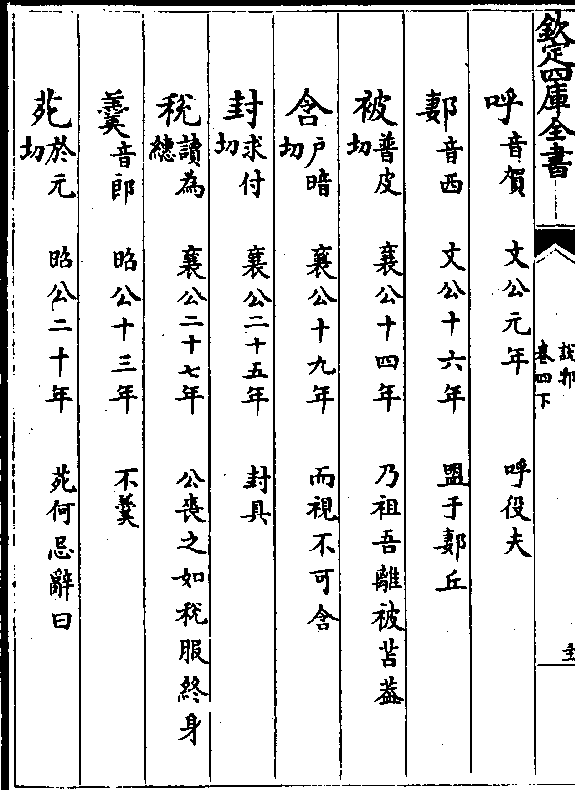 欽定四庫全書
說郛
卷四下
呼 音賀 文公元年 呼役夫
郪 音西 文公十六年 盟于郪丘
被 普皮切 襄公十四年 乃祖吾離被苫葢
含 户暗切 襄公十九年 而視不可含
封 求付切 襄公二十五年 封具
稅 讀為繐 襄公二十七年 公喪之如稅服終身
羹 音郎 昭公十三年 不羹
苑 於元切 昭公二十年 苑何忌辭曰